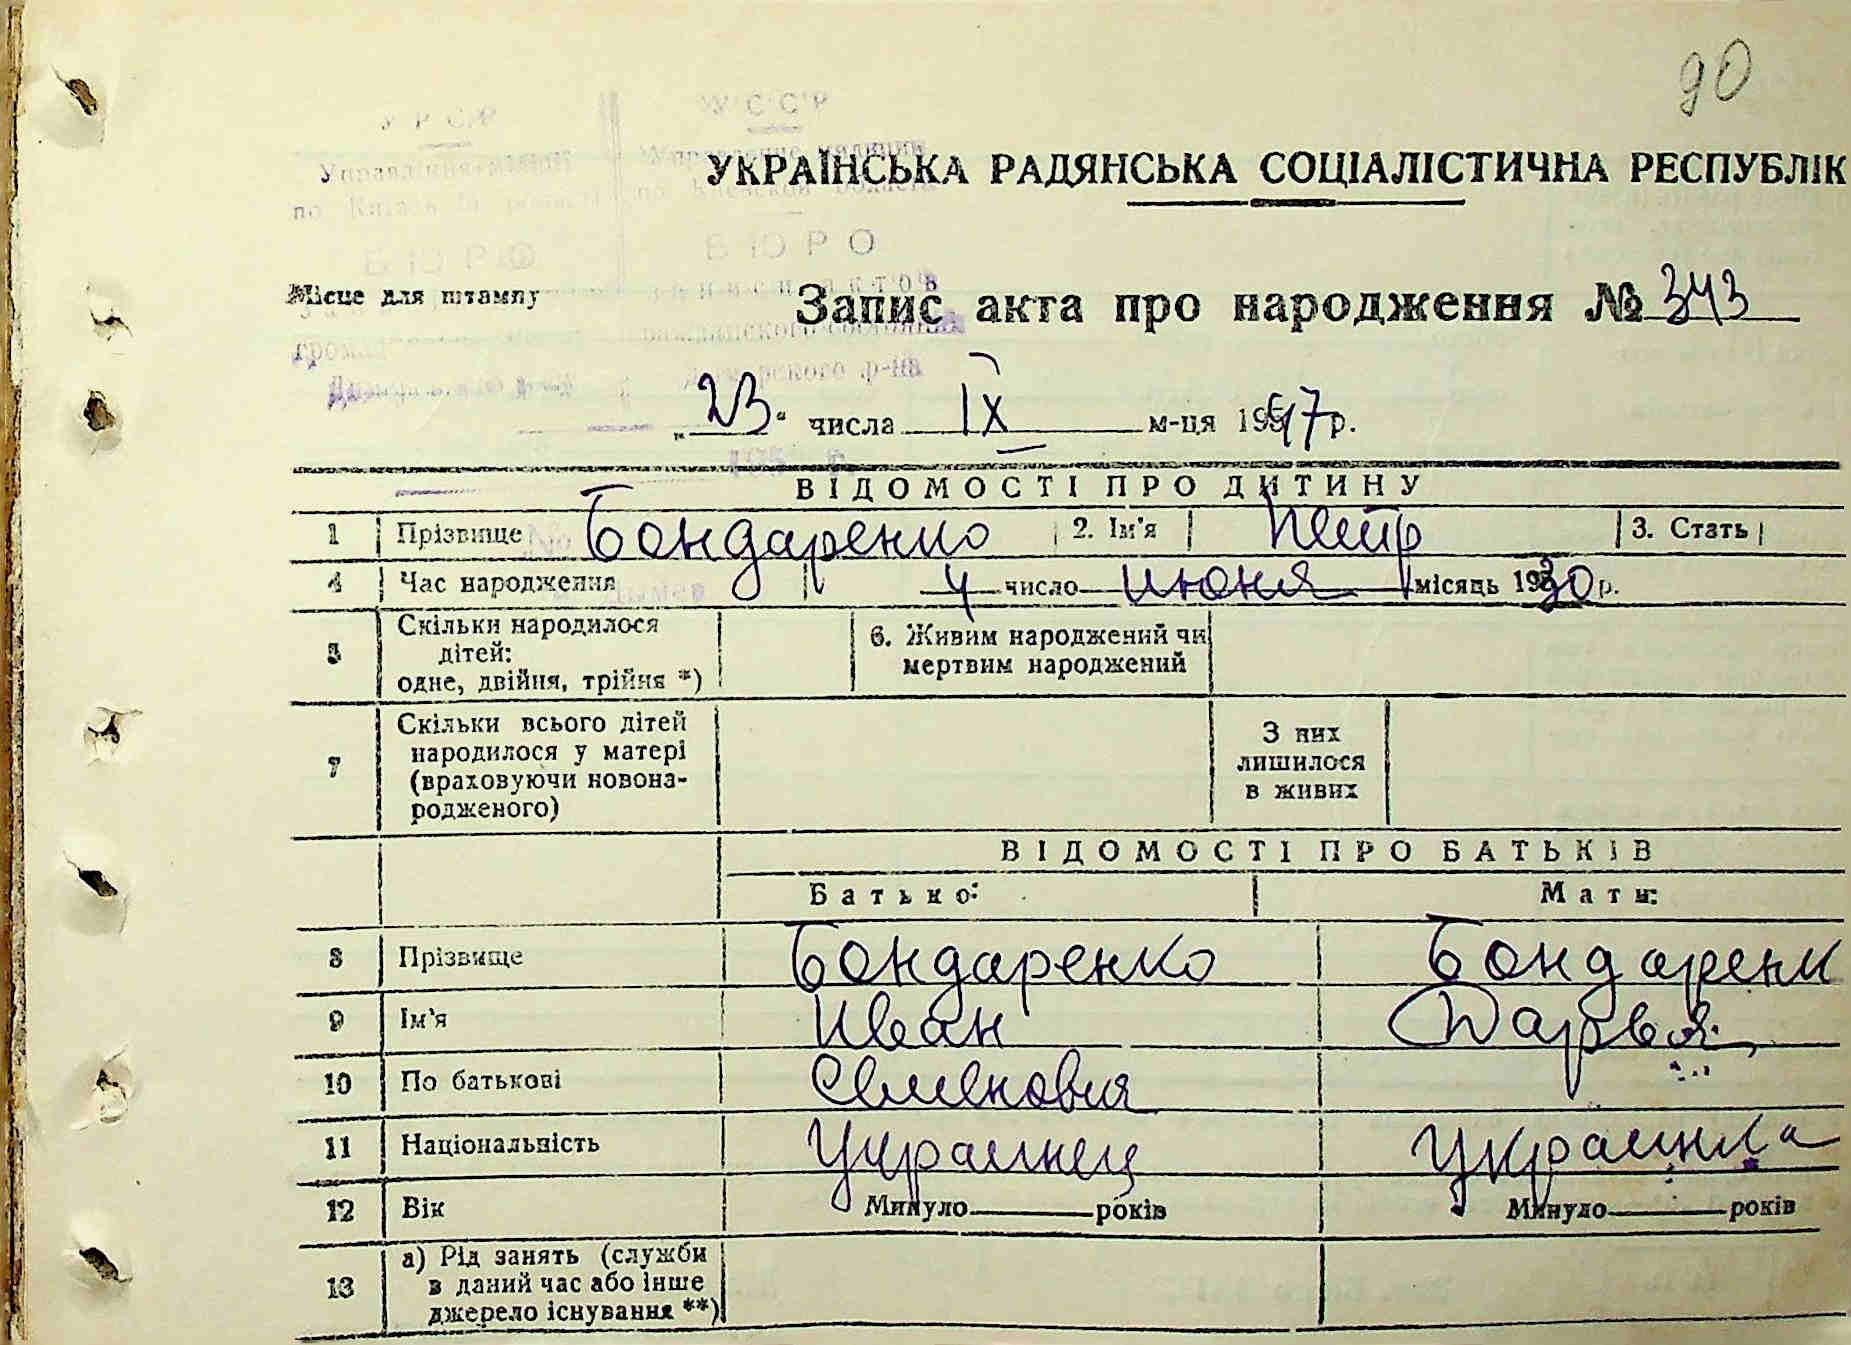 90
УРСР УССР
Управление милиции
по Киевской области
БЮРО БЮРО
УКРАЇНСЬКА РАДЯНСЬКА СОЦІАЛІСТИЧНА РЕСПУБЛІК
Місце для штампу
Запис акта про народження № 343
„23“ числа IX м-ця 1957 р.
ВІДОМОСТІ ПРО ДИТИНУ
1 Прізвище Бондаренко 2. Ім'я Петр 3. Стать
4 Час народження 4 число июня місяць 1930 р.
5 Скільки народилося дітей: одне, двійня, трійня *) 6. Живим народжений чи мертвим народжений
7 Скільки всього дітей народилося у матері (враховуючи новона-родженого) З них лишилося в живих
ВІДОМОСТІ ПРО БАТЬКІВ
Батько: Мати:
8 Прізвище Бондаренко Бондаренк
9 Ім'я Иван Дарья
10 По батькові Семенович
11 Національність Украинец Украинка
12 Вік Минуло років Минуло років
13 а) Рід занять (служби в даний час або інше джерело існування **)